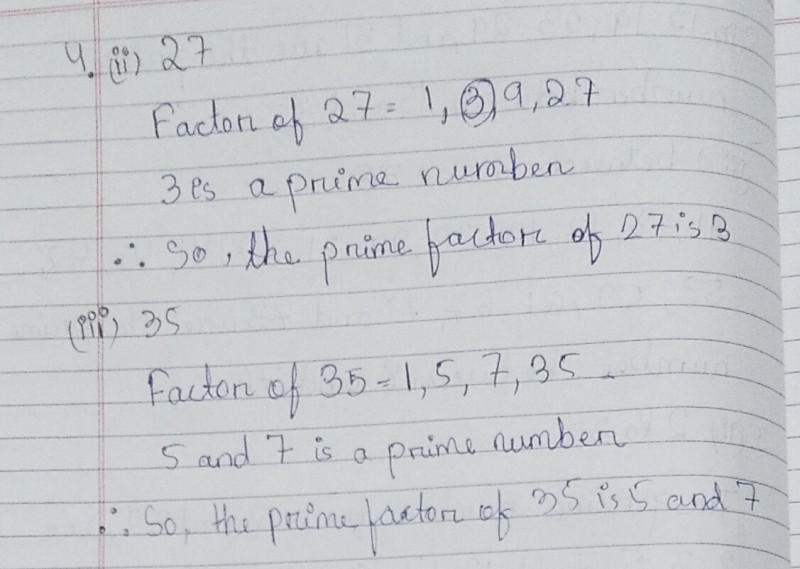 4. (ii) 27
Factor of 27 = 1, 3, 9, 27
3 es a prime number
∴ So, the prime factor of 27 is 3
(iii) 35
Factor of 35 = 1, 5, 7, 35 -
5 and 7 is a prime number
∴ So, the prime factor of 35 is 5 and 7